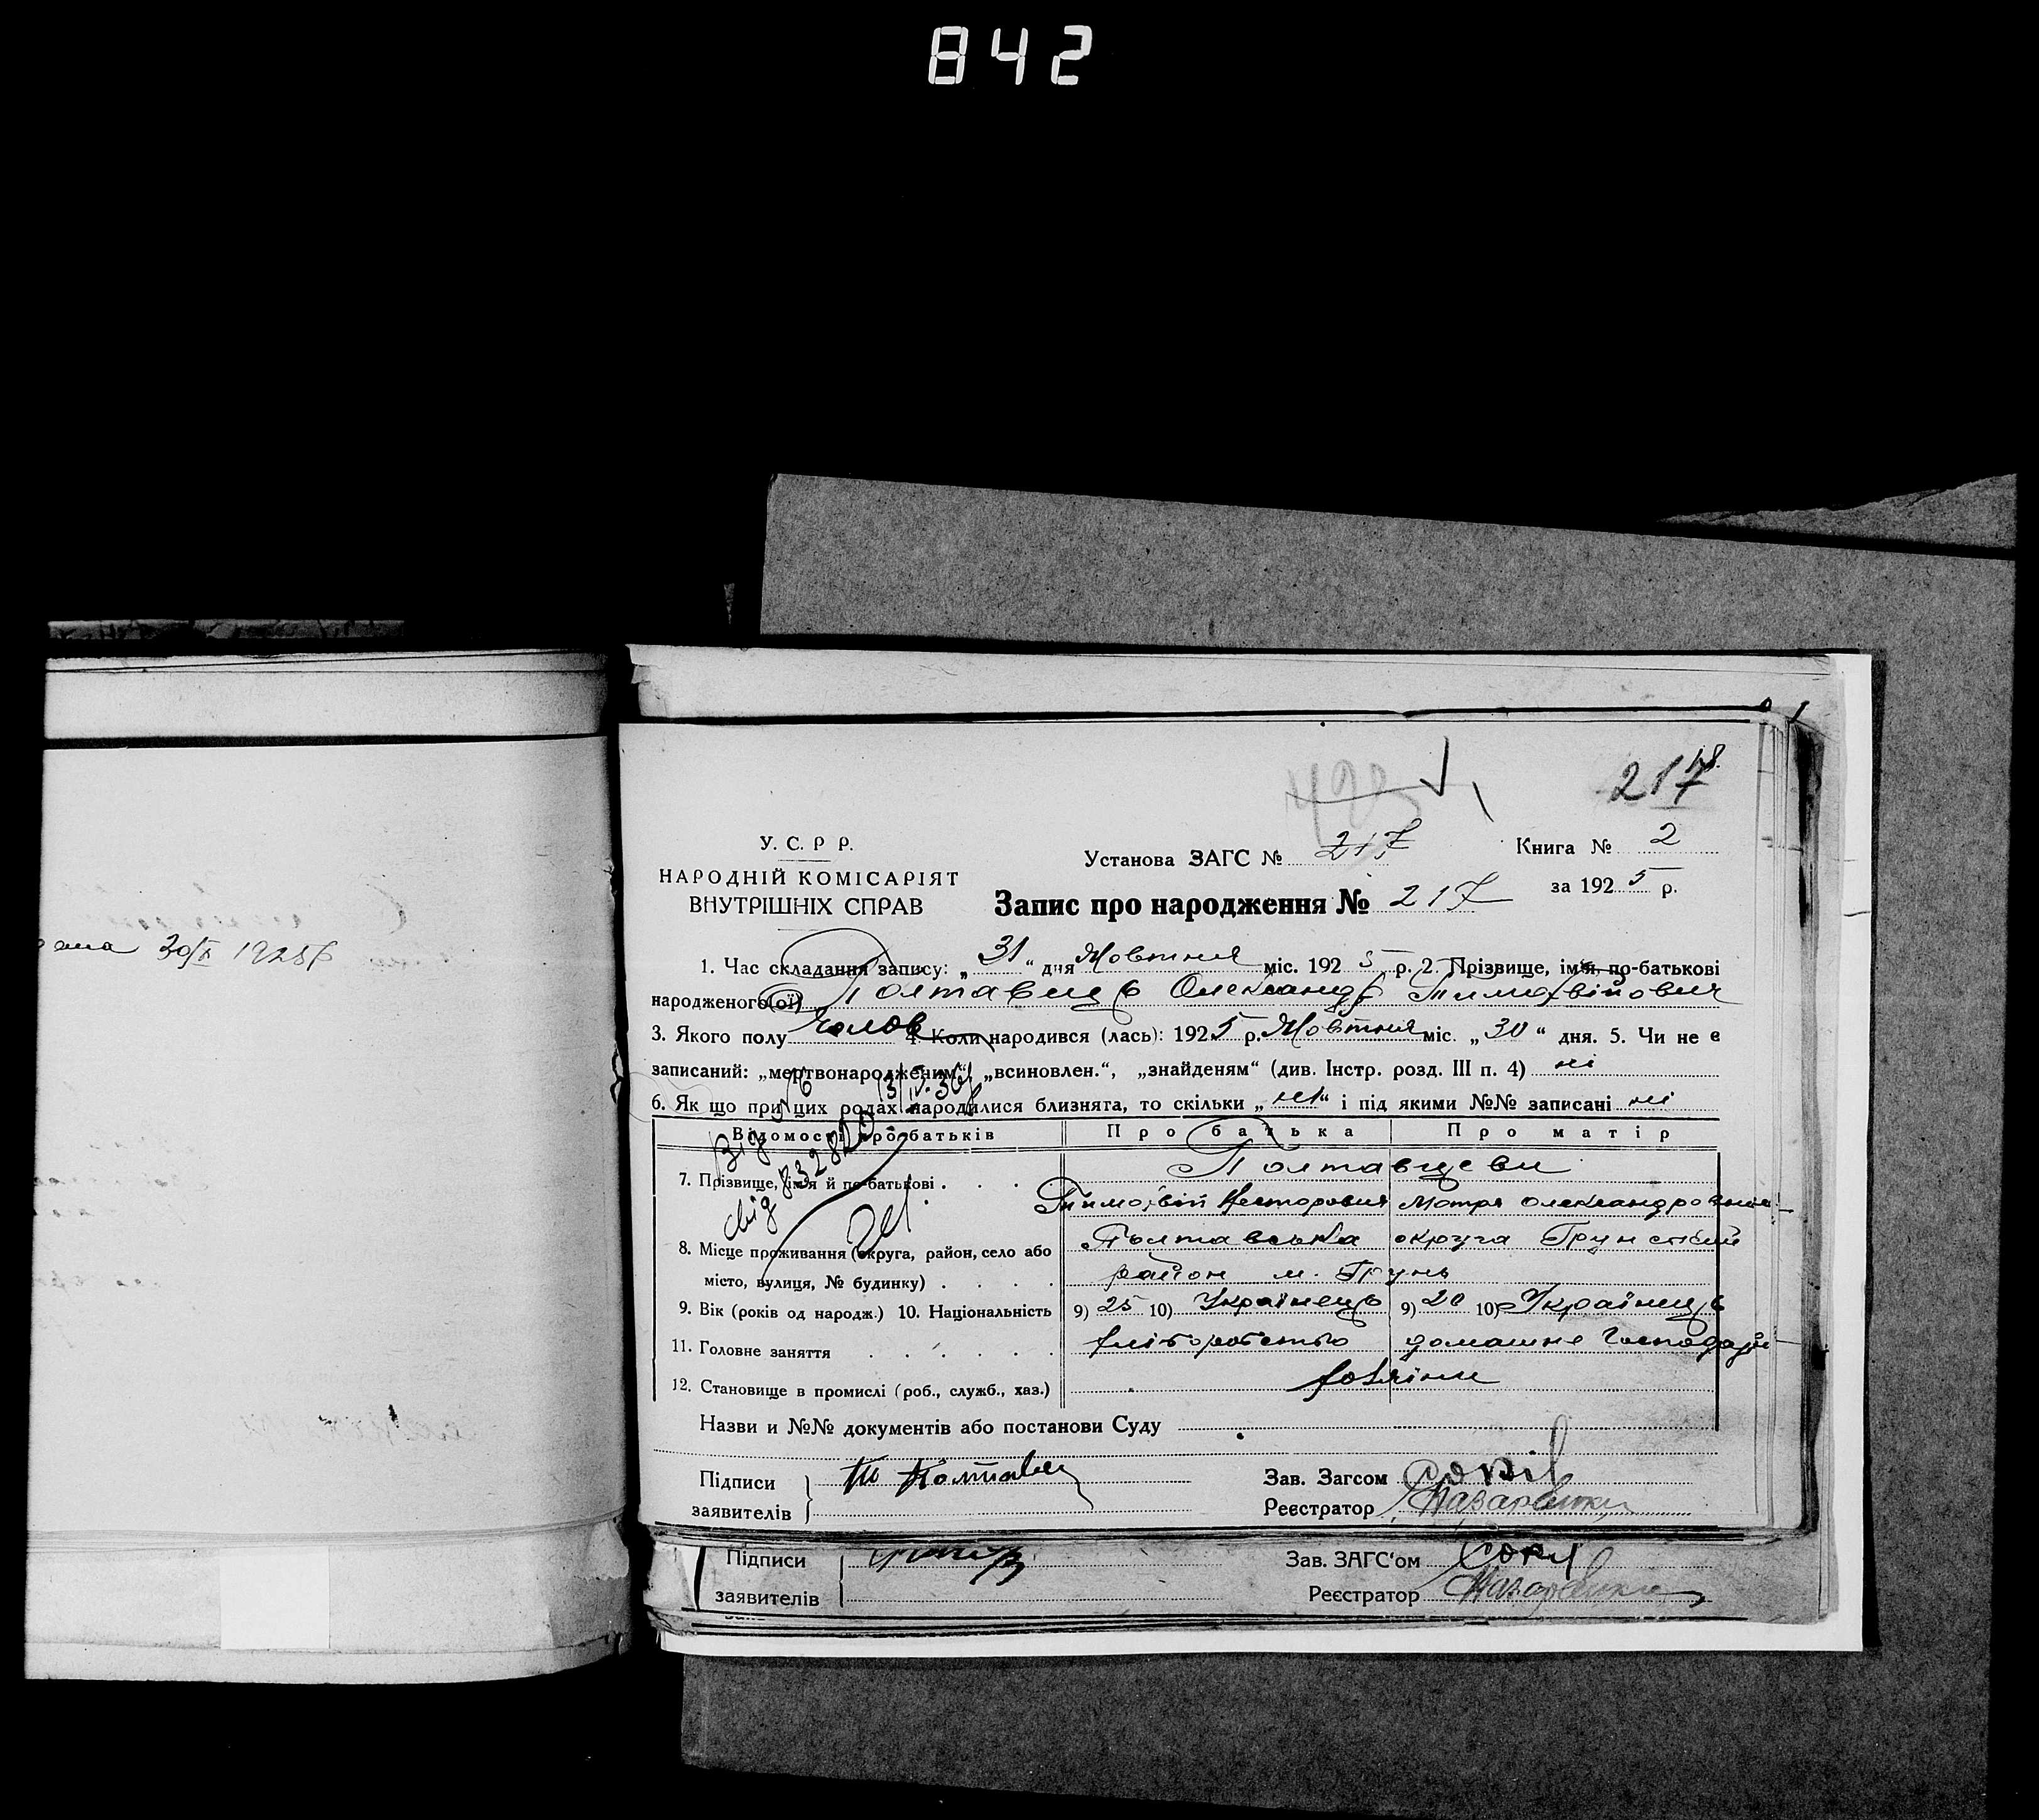 842
30/X 1925 р
217
У. С. Р Р.
НАРОДНІЙ КОМІСАРІЯТ
ВНУТРІШНІХ СПРАВ
Установа ЗАГС № 217
Книга № 2
за 1925 р.
Запис про народження № 217
1. Час складання запису: „31“ дня Жовтня міс. 1925 р. 2. Прізвище, ім'я, по-батькові
народженого(ої) Полтавець Олександр Тимофійович
3. Якого полу чолов 4. Коли народився (лась): 1925 р. Жовтня міс. „30“ дня. 5. Чи не є
записаний: „мертвонародженим“, „всиновлен.“, „знайденям“ (див. Інстр. розд. III п. 4) ні
6. Як що при цих родах народилися близнята, то скільки „ні“ і під якими №№ записані ні
Відомості про батьків Про батька Про матір
7. Прізвище, ім'я й по-батькові . . . Полтавцеви
Тимофій Несторович Мотря Олександровна
8. Місце проживання (округа, район, село або Полтавська округа Грунський
місто, вулиця, № будинку) . . . . район м. Грунь
9. Вік (років од народж.) 10. Національність 9) 25 10) Українець 9) 20 10) Українець
11. Головне заняття . . . . . . хліборобство домашнє
12. Становище в промислі (роб., служб., хаз.)
Назви и №№ документів або постанови Суду
Підписи Полтавец Зав. Загсом
заявителів Реєстратор
Підписи Зав. ЗАГС'ом
заявителів Реєстратор